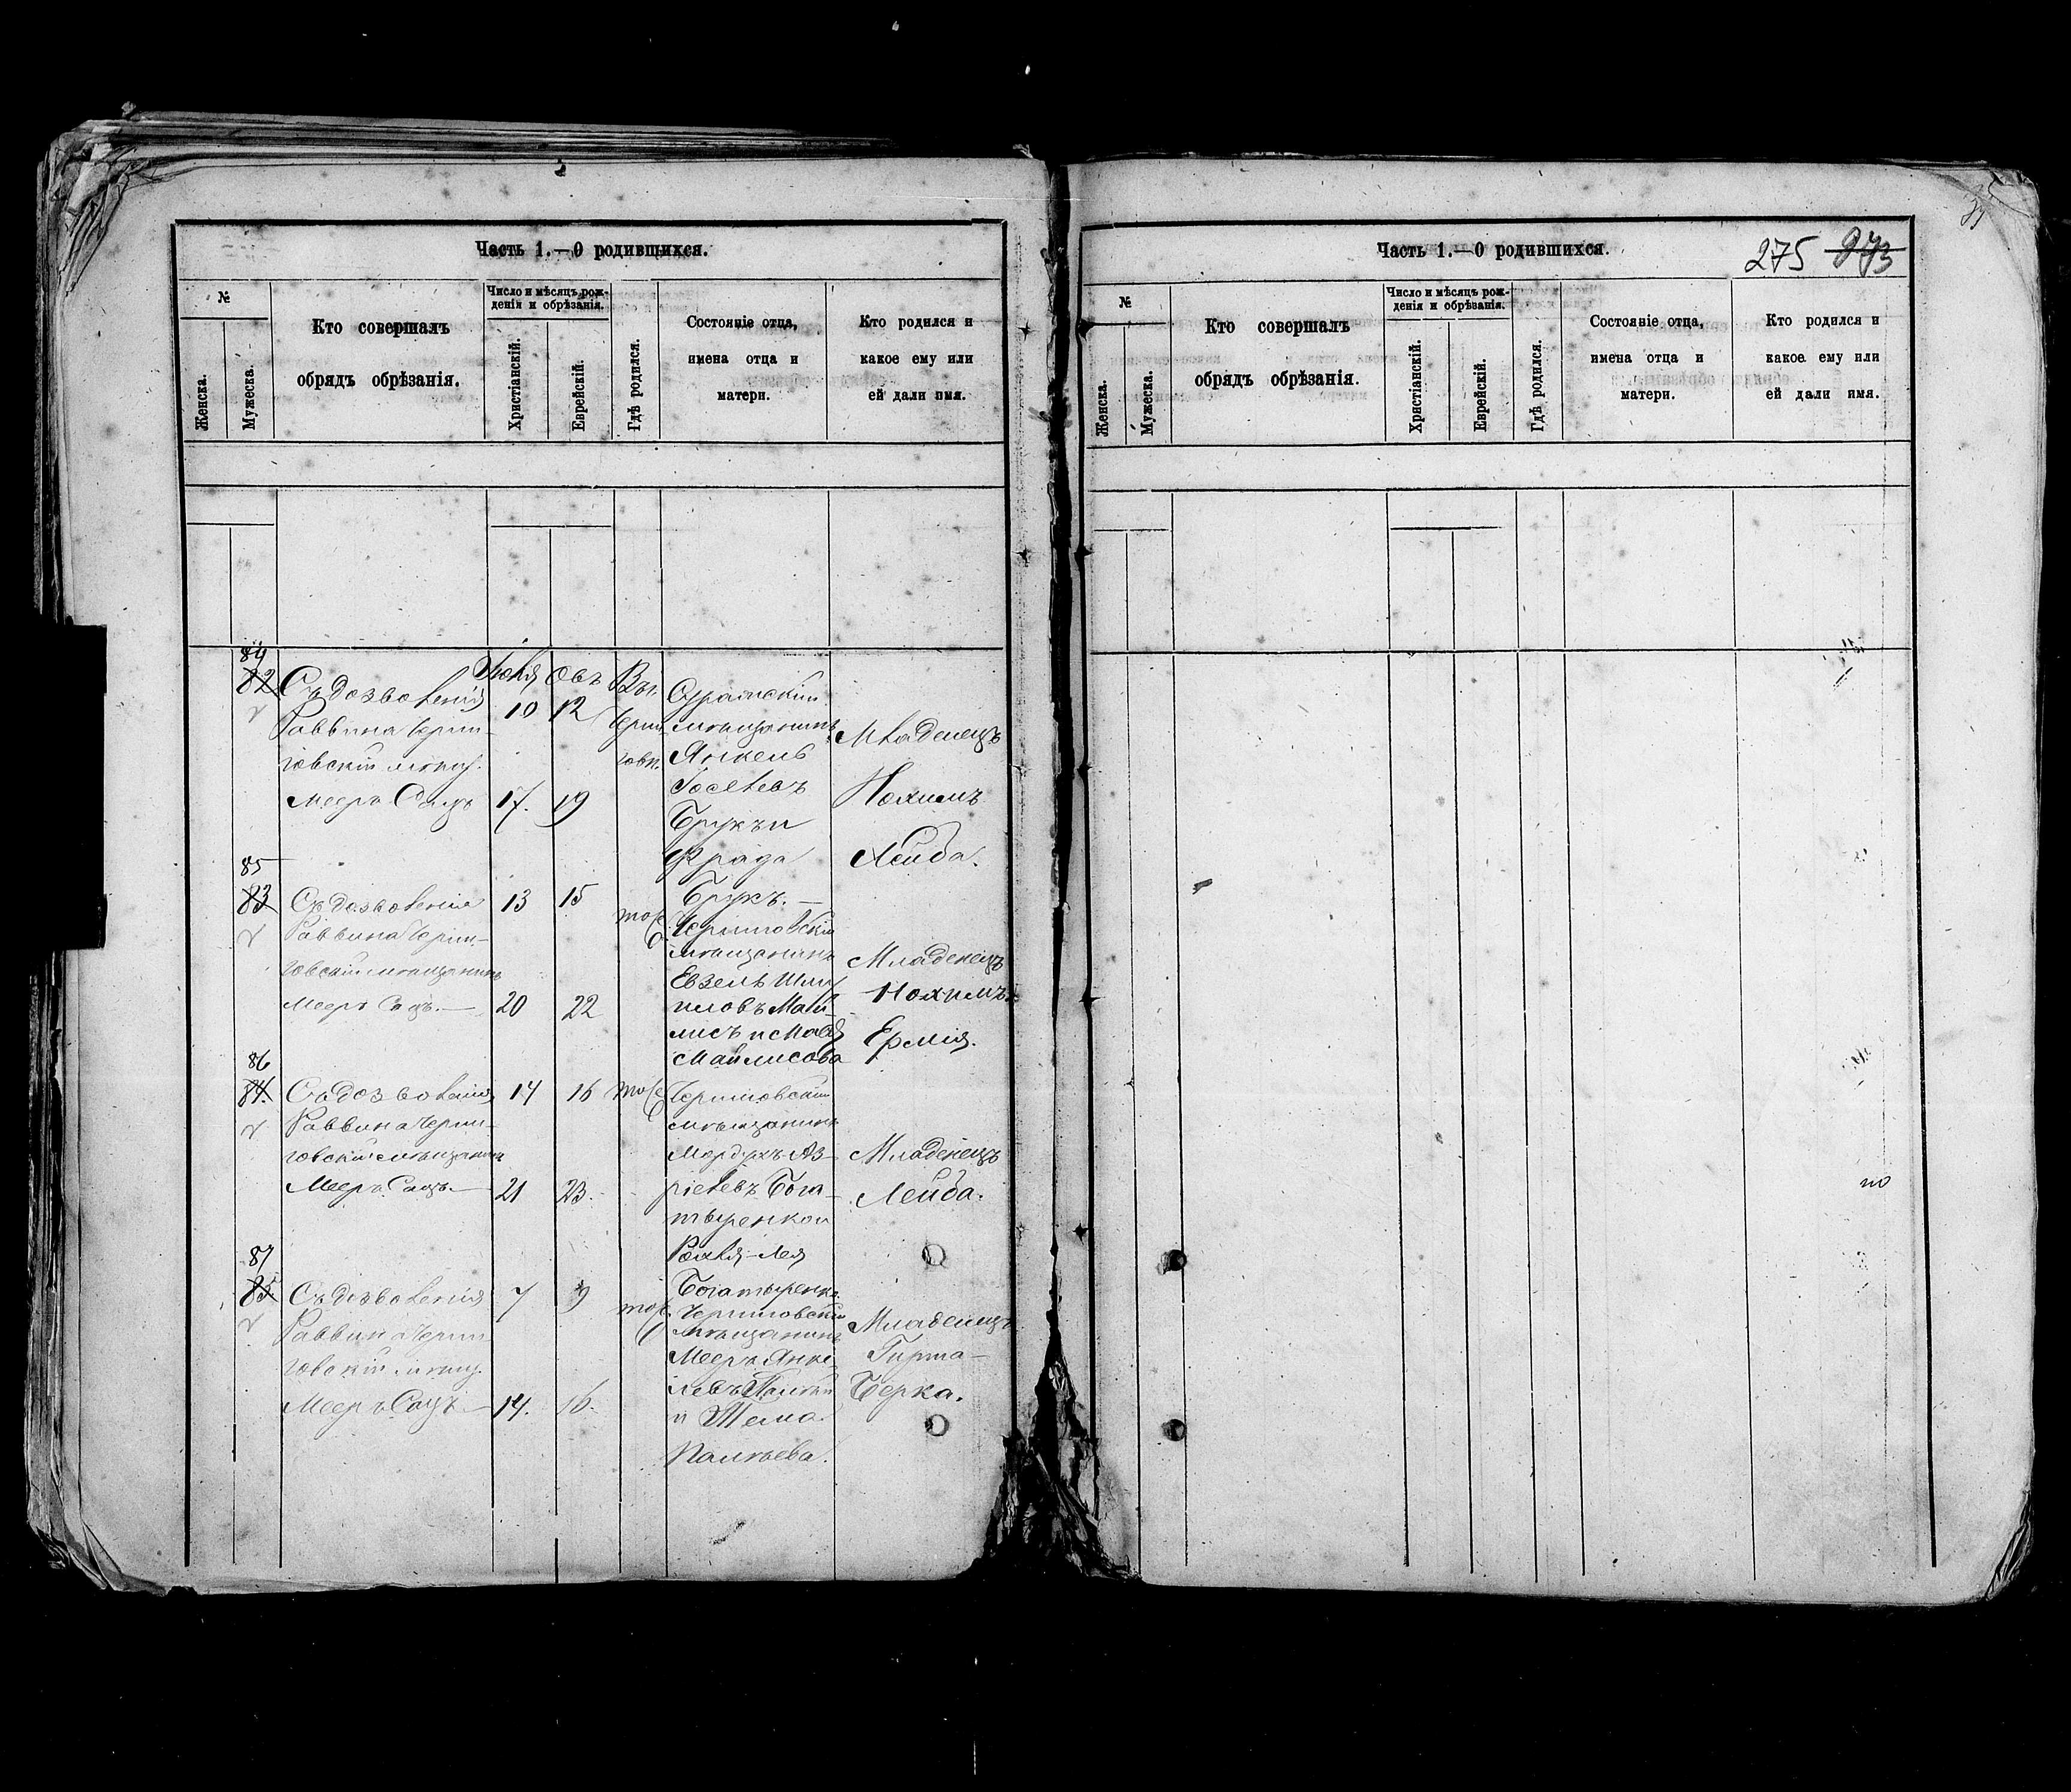 Часть 1.—О родившихся.
№
Женска.
Мужеска.
Кто совершалъ
обрядъ обрѣзанія.
Число и мѣсяцъ рож-
денія и обрѣзанія.
Христіанскій.
Еврейскій.
Гдѣ родился.
Состояніе отца,
имена отца и
матери.
Кто родился и
какое ему или
ей дали имя.
84
82
Съ дозволенія
Раввина Черни-
говскій мѣщ.
Мееръ Сацъ
10
12
17.
19
Въ г.
Черни
говѣ.
мѣщанинъ
Янкель
Іоселевъ
Брукъ и
Фрада
Брукъ.—
Младенецъ
Нохимъ
Лейба.
85
83
Съ дозволенія
Раввина Черни-
говскій мѣщанинъ
Мееръ Сацъ.—
13
15
20
22
тоже
Черниговскій
мѣщанинъ
Евзель
Майлисова
Младенецъ
Нохимъ
Ермія.
86
84.
Съ дозволенія
Раввина Черни-
говскій мѣщанинъ
Мееръ Сацъ.—
14
16
21
23.
тоже
Черниговскій
мѣщанинъ
Мордухъ Аз-
ріелевъ Бога-
тыренко и
Рохля-Лея
Богатыренко.
Младенецъ
Лейба.
87
85
Съ дозволенія
Раввина Черни
говскій мѣщ.
Мееръ Сацъ.—
7
9
14.
16.
тоже
Черниговскій
мѣщанинъ
Мееръ Янке-
левъ
и Тема
Палѣева.
Младенецъ
Гирша-
Берка.
Часть 1.—О родившихся.
275 273
35
№
Женска.
Мужеска.
Кто совершалъ
обрядъ обрѣзанія.
Число и мѣсяцъ рож-
денія и обрѣзанія.
Христіанскій.
Еврейскій.
Гдѣ родился.
Состояніе отца,
имена отца и
матери.
Кто родился и
какое ему или
ей дали имя.